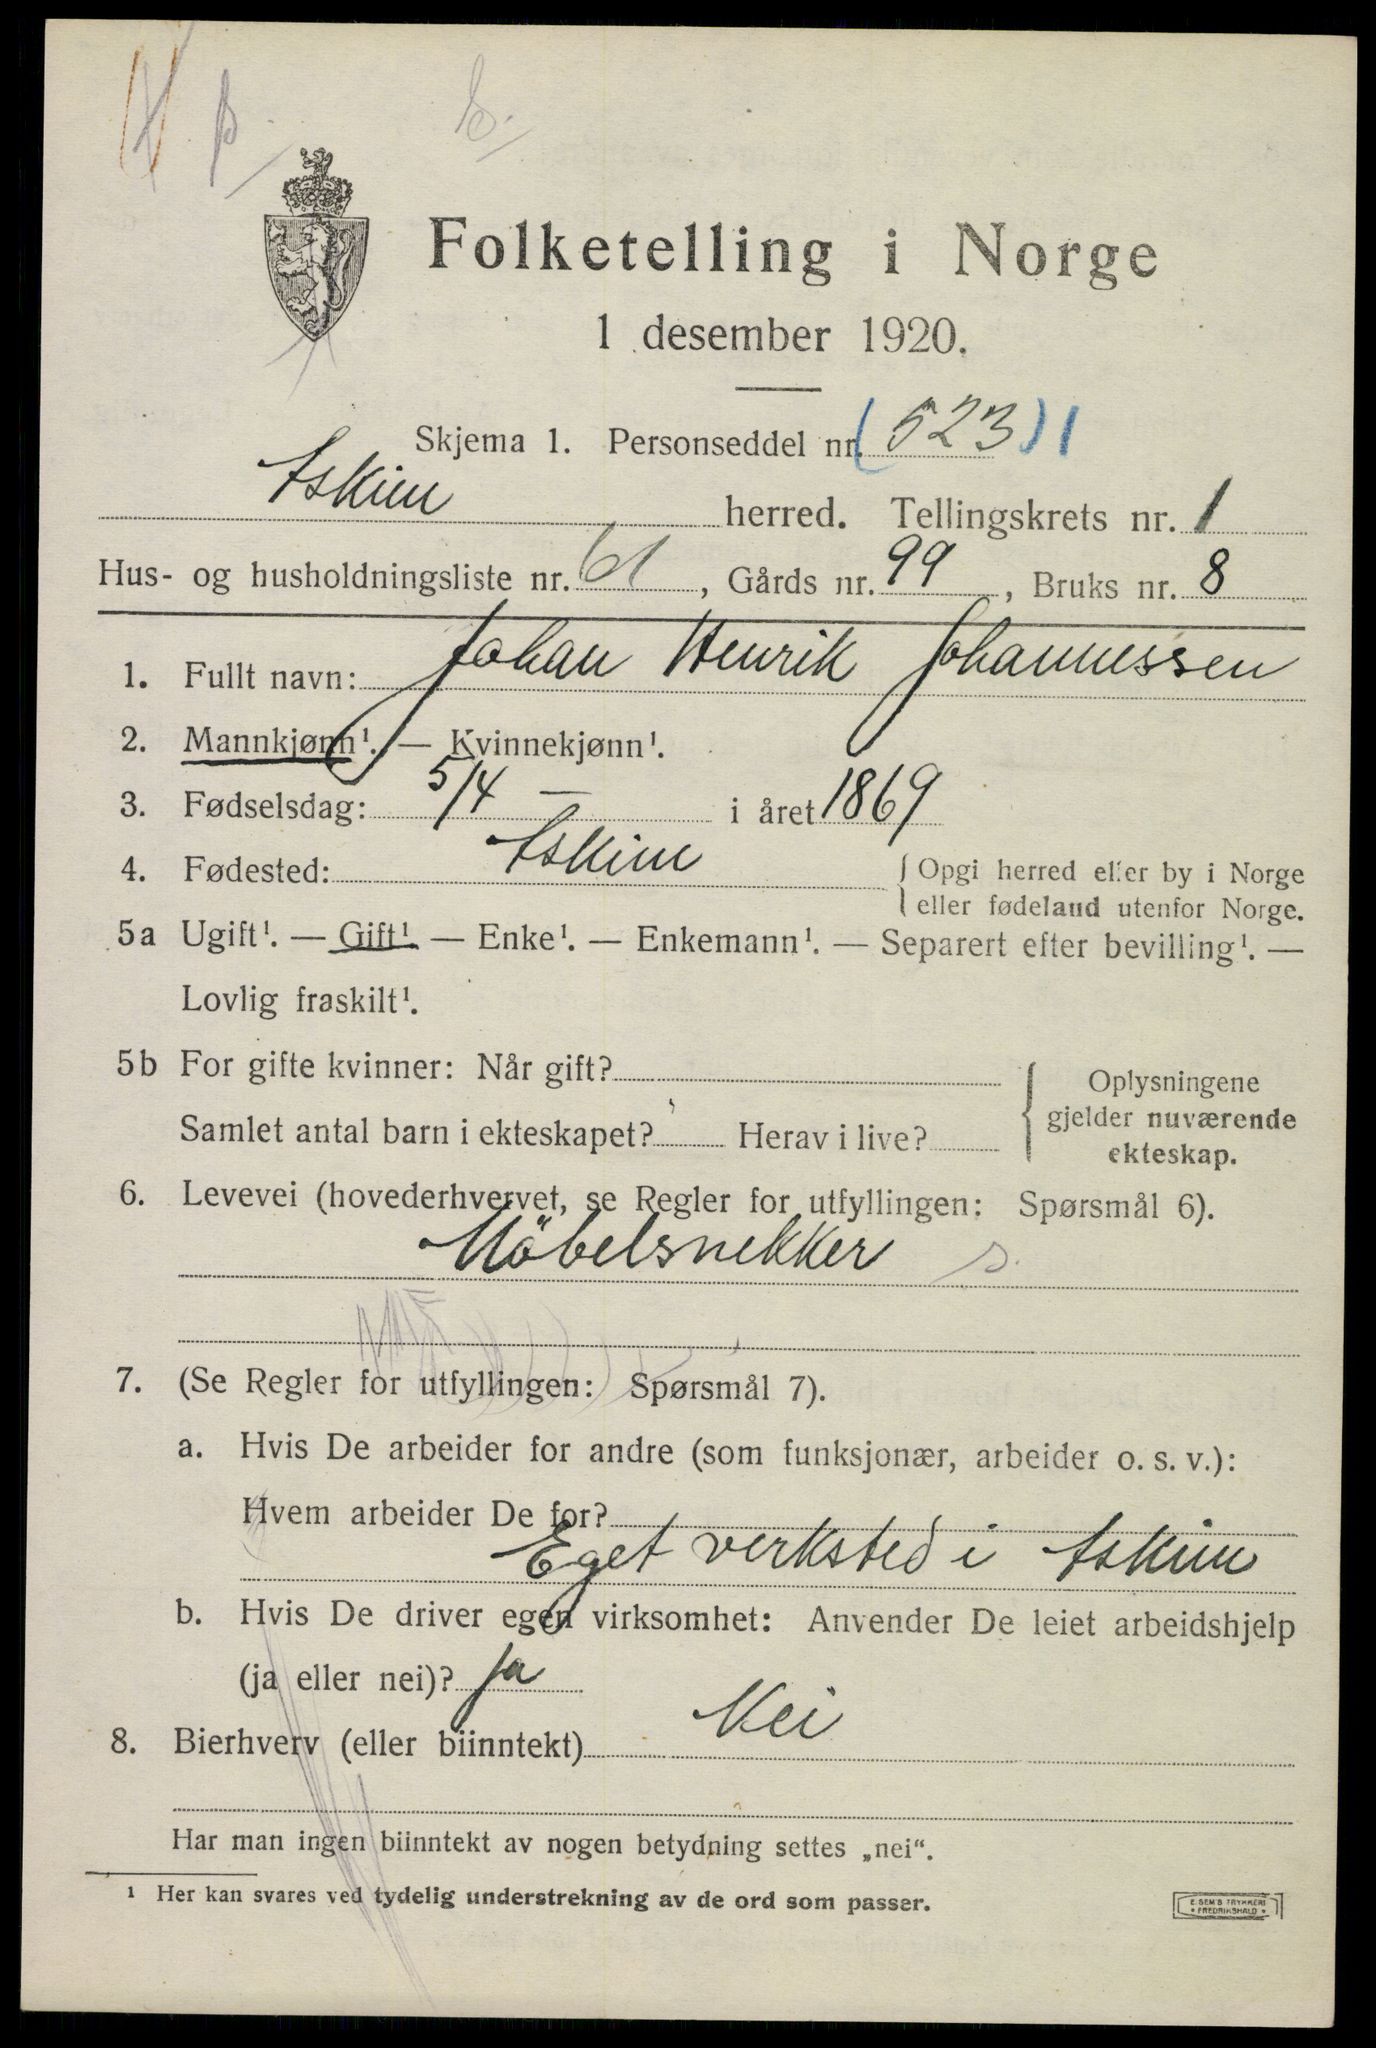 Folketelling i Norge
1 desember 1920.
Skjema 1. Personseddel nr. (523) 1
Askim herred. Tellingskrets nr. 1
Hus- og husholdningsliste nr. 61, Gårds nr. 99, Bruks nr. 8
1. Fullt navn: Johan Henrik Johannessen
2. Mannkjønn¹. — Kvinnekjønn¹.
3. Fødselsdag: 5/4 — i året 1869
4. Fødested: Askim { Opgi herred eller by i Norge
eller fødeland utenfor Norge.
5a Ugift¹. — Gift¹ — Enke¹. — Enkemann¹. — Separert efter bevilling¹. —
Lovlig fraskilt¹.
5b For gifte kvinner: Når gift?
Samlet antal barn i ekteskapet? Herav i live?
{ Oplysningene
gjelder nuværende
ekteskap.
6. Levevei (hovederhvervet, se Regler for utfyllingen: Spørsmål 6).
Möbelsnekker s.
7. (Se Regler for utfyllingen: Spørsmål 7).
a. Hvis De arbeider for andre (som funksjonær, arbeider o. s. v.):
Hvem arbeider De for?
Eget verksted i Askim
b. Hvis De driver egen virksomhet: Anvender De leiet arbeidshjelp
(ja eller nei)? Ja
8. Bierhverv (eller biinntekt) Nei
Har man ingen biinntekt av nogen betydning settes „nei“.
¹ Her kan svares ved tydelig understrekning av de ord som passer.
E. SEM'S TRYKKERI
* FREDRIKSHALD *